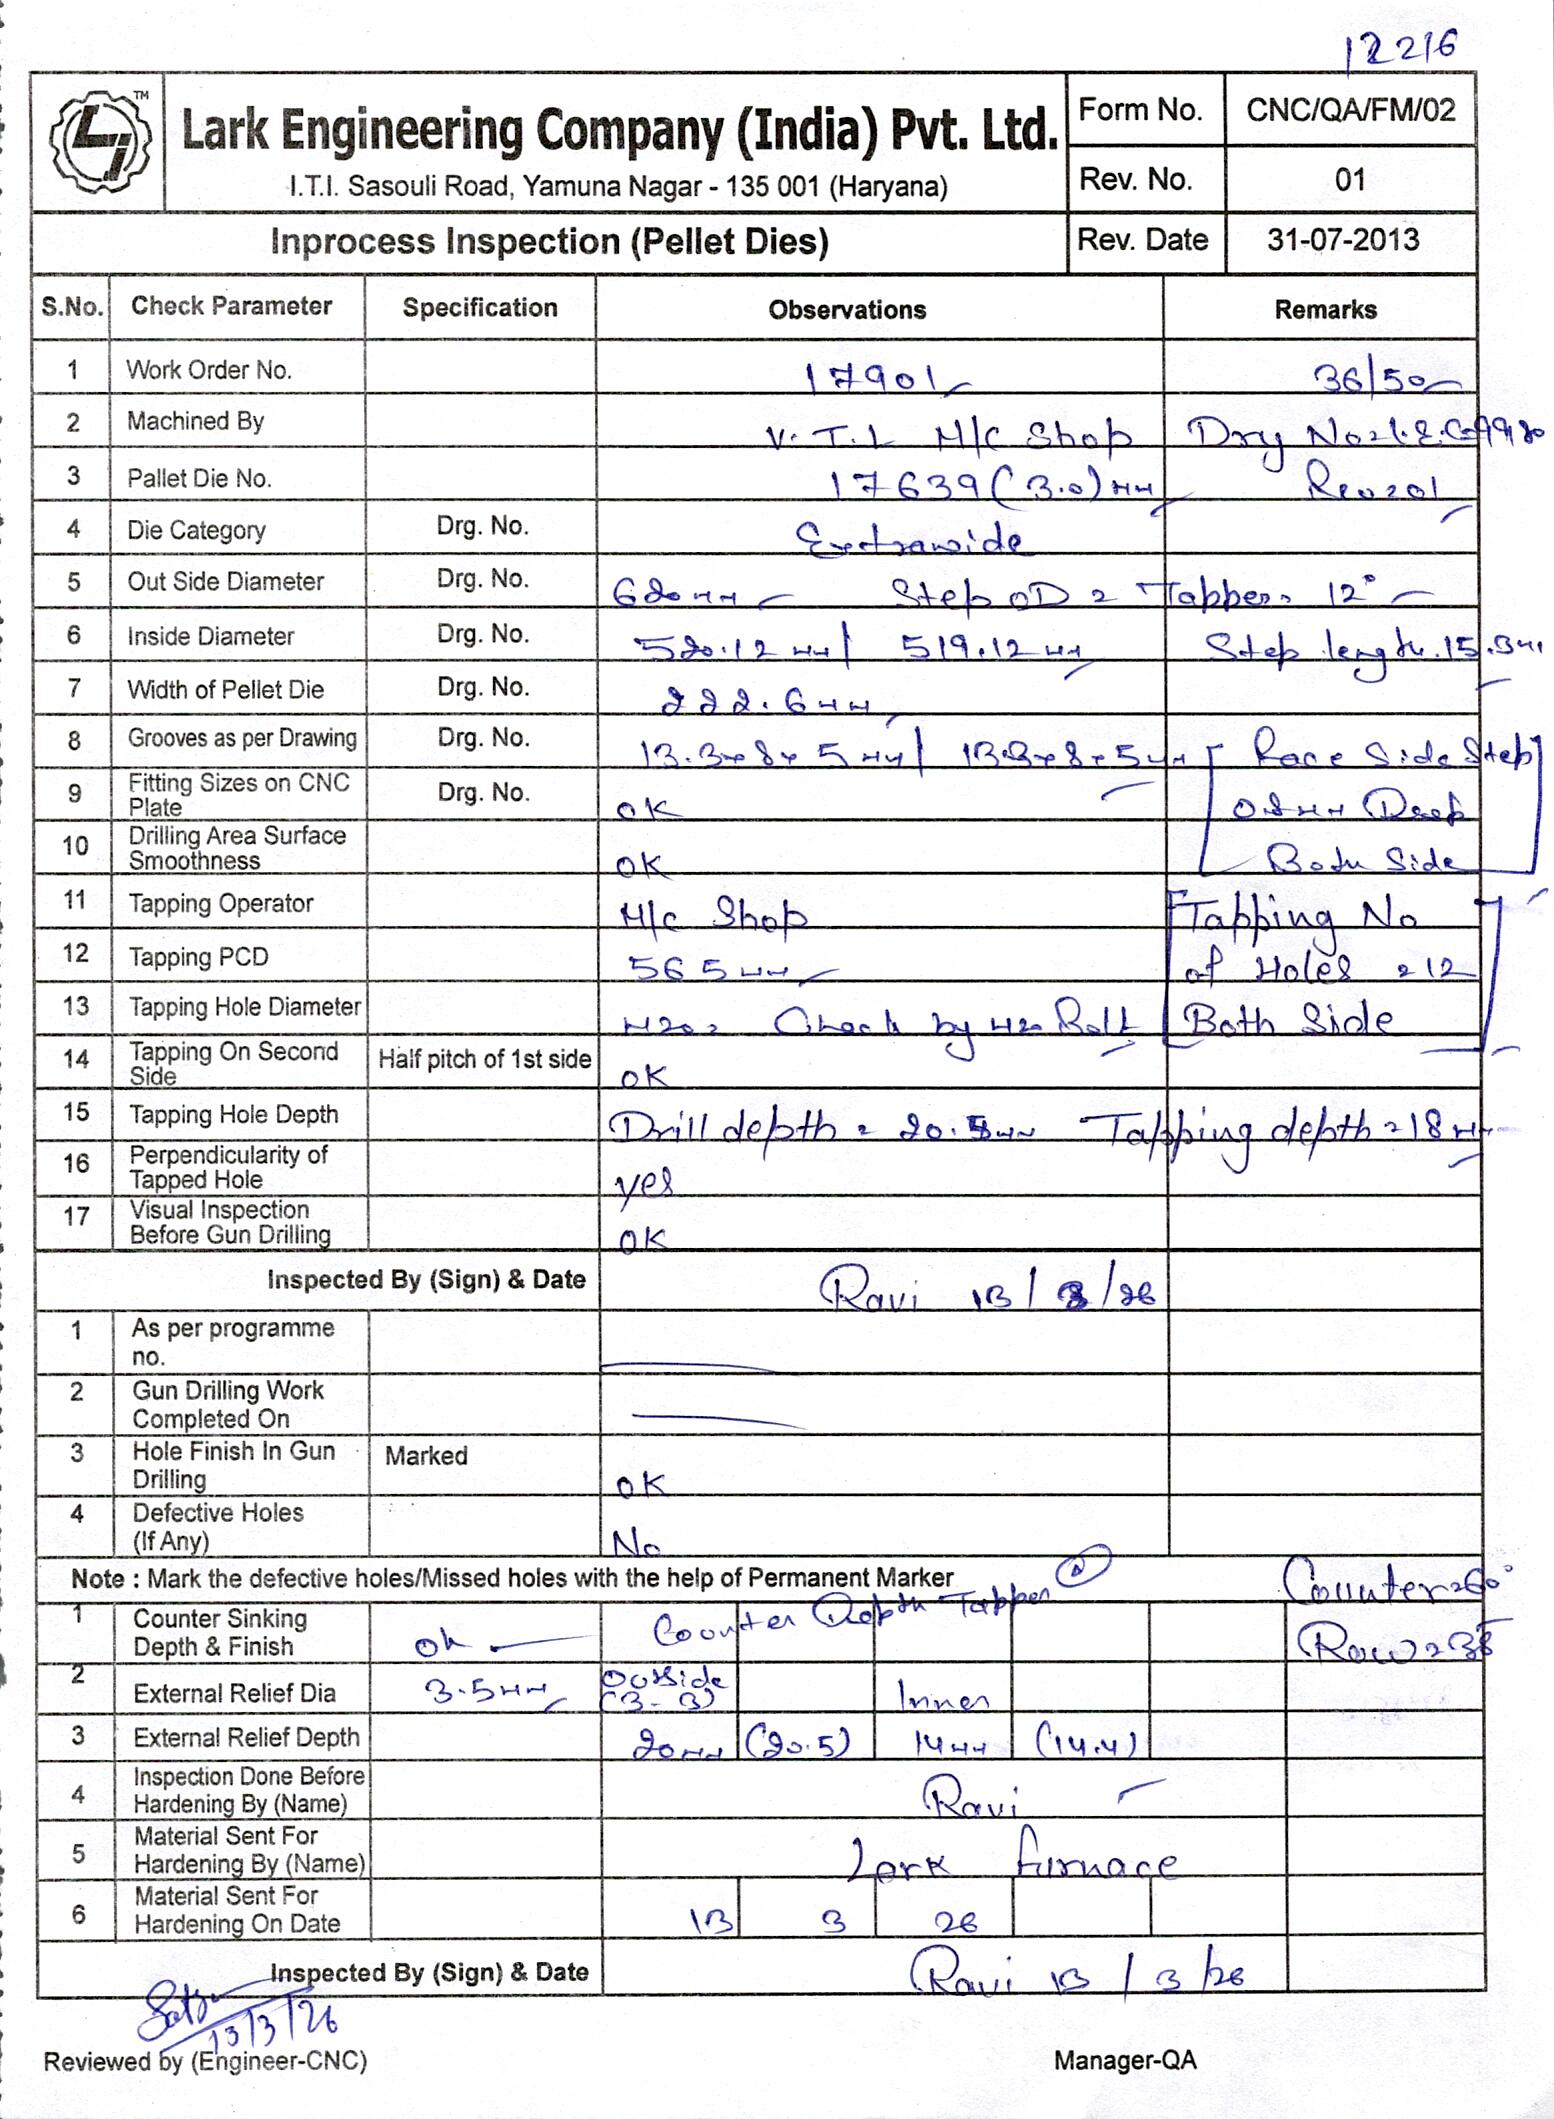 12216
TM
Lark Engineering Company (India) Pvt. Ltd.
I.T.I. Sasouli Road, Yamuna Nagar - 135 001 (Haryana)
Form No. CNC/QA/FM/02
Rev. No. 01
Inprocess Inspection (Pellet Dies) Rev. Date 31-07-2013
S.No. Check Parameter Specification Observations Remarks
1 Work Order No. 17901 36/50
2 Machined By V.T.L M/C Shop Drg No=L.E.C-9980
3 Pallet Die No. 17639 (3.0) mm Rev=01
4 Die Category Drg. No. Extrawide
5 Out Side Diameter Drg. No. 620mm Step OD = Tapper= 12°
6 Inside Diameter Drg. No. 520.12 mm / 519.12 mm Step length.15.3mm
7 Width of Pellet Die Drg. No. 222.6mm
8 Grooves as per Drawing Drg. No. 13.3x8x5mm / 13.3x8x5mm Race Side Step
9 Fitting Sizes on CNC Plate Drg. No. OK 0.8mm Deep
10 Drilling Area Surface Smoothness OK Both Side
11 Tapping Operator M/C Shop Tapping No
12 Tapping PCD 565mm of Holes = 12
13 Tapping Hole Diameter M20= Check by M20 Bolt Both Side
14 Tapping On Second Side Half pitch of 1st side OK
15 Tapping Hole Depth Drill depth = 20.5mm Tapping depth = 18mm
16 Perpendicularity of Tapped Hole yes
17 Visual Inspection Before Gun Drilling OK
Inspected By (Sign) & Date Ravi 13/3/26
1 As per programme no.
2 Gun Drilling Work Completed On
3 Hole Finish In Gun Drilling Marked OK
4 Defective Holes (If Any) No
Note : Mark the defective holes/Missed holes with the help of Permanent Marker Counter=60°
1 Counter Sinking Depth & Finish ok Counter Depth Tapper Row=38
2 External Relief Dia 3.5mm Outside (3-3) Inner
3 External Relief Depth 20mm (20.5) 14mm (14.4)
4 Inspection Done Before Hardening By (Name) Ravi
5 Material Sent For Hardening By (Name) Lark furnace
6 Material Sent For Hardening On Date 13 3 26
Inspected By (Sign) & Date Ravi 13/3/26
13/3/26
Reviewed by (Engineer-CNC) Manager-QA